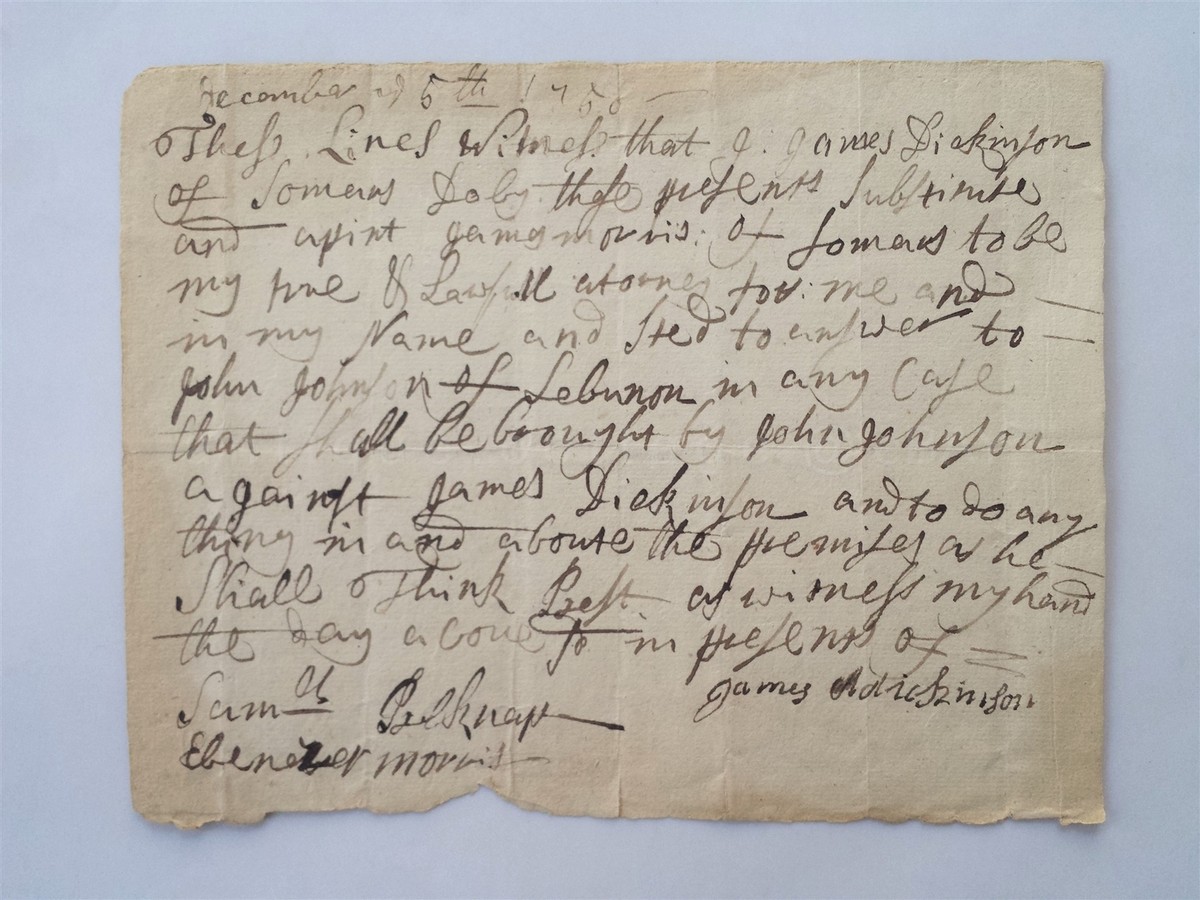 December 5th 1750
Thess Lines Witness that J. James Dickinson
of Somers Do by these presents Substitute
and apint James morris: of Somers to be
my true & Lawfull atorney for: me and
in my Name and Sted to answer to
John Johnson of Lebanon in any Case
that shall be brought by John Johnson
against James Dickinson and to do any
thing in and aboute the premises as he
Shall Think Best as witness my hand
the day aboue in presents of
Samll Belknap James Dickinson
Ebenezer morris